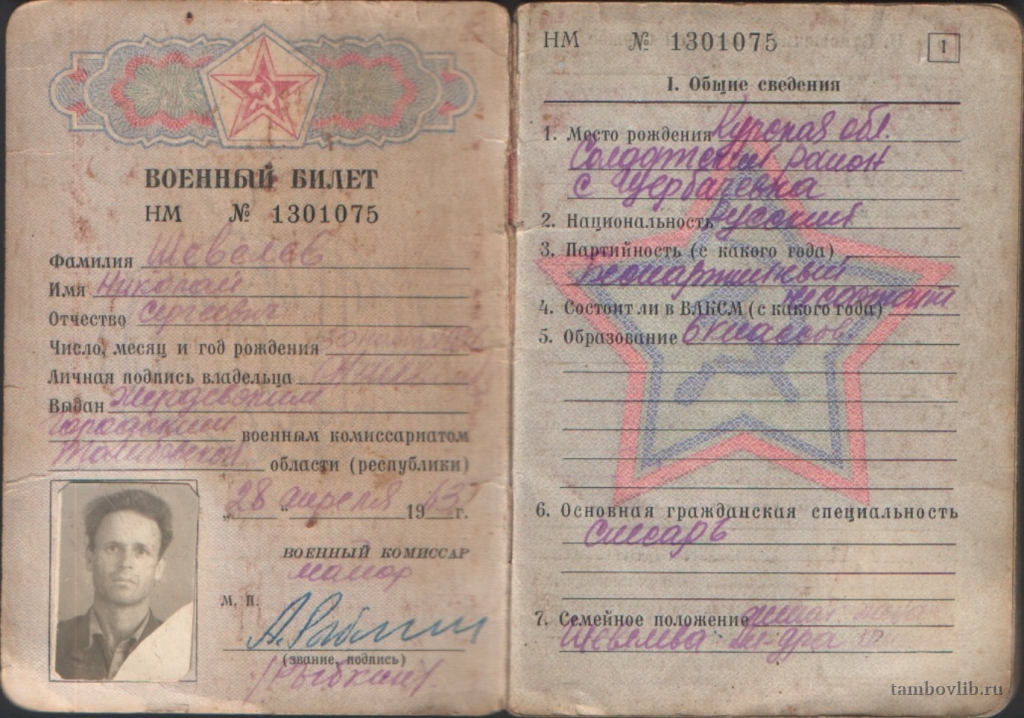 ВОЕННЫЙ БИЛЕТ
НМ № 1301075
Фамилия Шевелев
Имя Николай
Отчество Сергеевич
Число, месяц и год рождения
Личная подпись владельца
Выдан Жердевским
городским военным комиссариатом
Тамбовской области (республики)
„28“ апреля 1963 г.
ВОЕННЫЙ КОМИССАР
майор
М. П.
(звание, подпись)
НМ № 1301075
1
I. Общие сведения
1. Место рождения Курская обл.
Солдатский район
с Щербачевка
2. Национальность русский
3. Партийность (с какого года)
беспартийный
4. Состоит ли в ВЛКСМ (с какого года) не состоит
5. Образование 6 классов
6. Основная гражданская специальность
слесарь
7. Семейное положение жена
Шевелева
tambovlib.ru